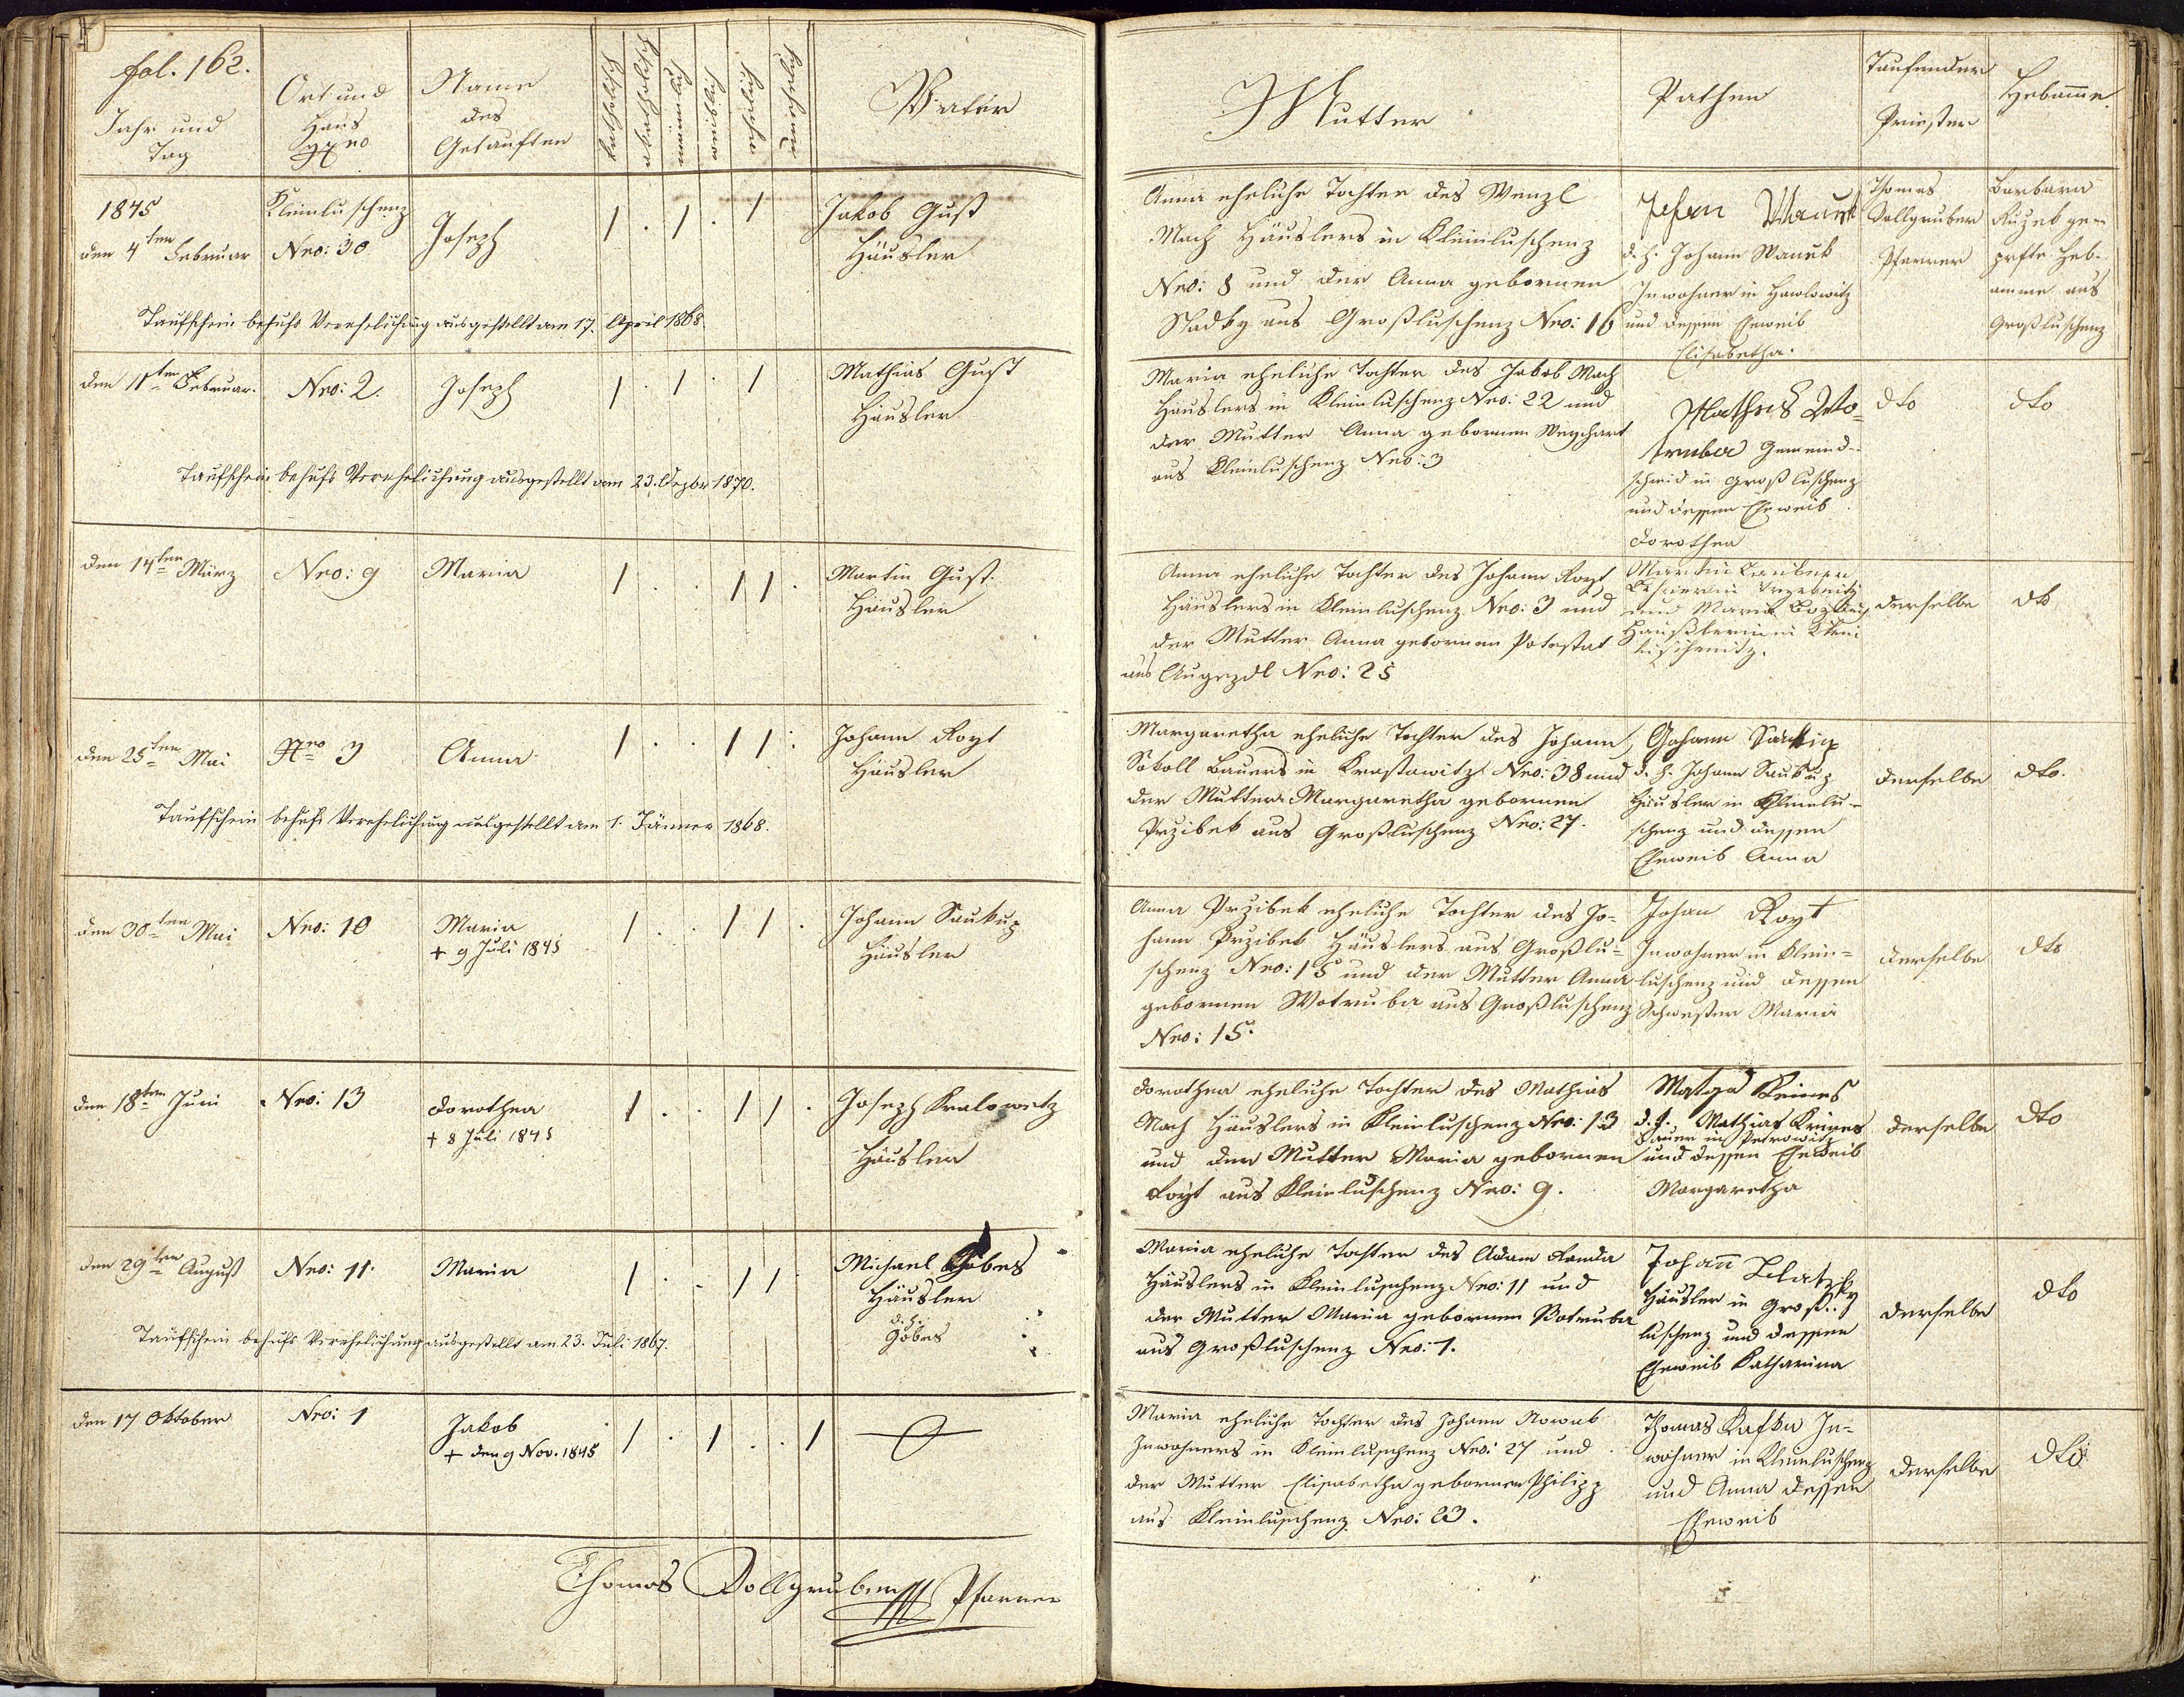 fol. 162.
Jahr und
Tag
Ort und
Haus
Nro
Name
des
Getauften
katholisch
akatholisch
männlich
weiblich
ehelich
unehelich
Vater
Mutter
Pathen
Taufender
Priester
Hebamme
1845
den 4ten Februar
Kleinluschenz
Nro: 30
Joseph
1 . 1 . 1
Jakob Gust
Häusler
Anna eheliche Tochter des Wenzl
Mach Häuslers in Kleinluschenz
Nro: 8 und der Anna gebornen
Sladky aus Großluschenz Nro: 16
d. h. Johann Wanek
Inwohner in Hawlowitz
und dessen Eheweib
Elisabetha.
Thomas
Dollgruber
Pfarrer
Barbara
ge-
prfte Heb-
amme aus
Großluschenz
Taufschein behufs Verehelichung ausgestellt am 17. April 1868.
den 11ten Februar.
Nro: 2.
Joseph
1 . 1 . 1
Mathias Gust
Häusler
Maria eheliche Tochter des Jakob Mach
Häuslers in Kleinluschenz Nro: 22 und
der Mutter Anna gebornen Weychart
aus Kleinluschenz Nro: 3
Mathies Wo-
truba Gemeind-
schmid in Großluschenz
und dessen Eheweib
Dorothea
dto
dto
Taufschein behufs Verehelichung ausgestellt am 23. Dezbr 1870.
den 14ten März
Nro: 9
Maria
1 . . 1 1 .
Martin Gust.
Häusler
Anna eheliche Tochter des Johann Royt
Häuslers in Kleinluschenz Nro: 3 und
der Mutter Anna gebornen Potestat
aus Augezdl Nro: 25
Martin
und Maria
Häuslerin in Klein
derselbe
dto
den 25ten Mai
Nro 3
Anna
1 . . 1 1 .
Johann Royt
Häusler
Margaretha eheliche Tochter des Johann
Sokoll Bauers in Krastowitz Nro: 38 und
der Mutter Margaretha gebornen
Przibek aus Großluschenz Nro: 27.
Johann
d. h. Johann Saukup
Häusler in Kleinlu-
schenz und dessen
Eheweib Anna
derselbe
dto.
Taufschein behufs Verehelichung ausgestellt am 1. Jänner 1868.
den 30ten Mai
Nro: 10
Maria
+ 9 Juli 1845
1 . . 1 1 .
Johann Saukup
Häusler
Anna Przibek eheliche Tochter des Jo-
hann Przibek Häuslers aus Großlu-
schenz Nro: 15 und der Mutter Anna
gebornen Wotruba aus Großluschenz
Nro: 15.
Johan Royt
Inwohner in Klein-
luschenz und dessen
Schwester Maria
derselbe
dto
den 18ten Juni
Nro: 13
Dorothea
+ 8 Juli 1845
1 . . 1 1 .
Joseph Kralowetz
Häusler
Dorothea eheliche Tochter des Mathias
Mach Häuslers in Kleinluschenz Nro: 13
und der Mutter Maria gebornen
Royt aus Kleinluschenz Nro: 9.
d. h. Mathias
Bauer in Petrowitz
und dessen Eheweib
Margaretha
derselbe
dto
den 29ten August
Nro: 11.
Maria
1 . . 1 1
Michael
Häusler
d. h.
Göbes
Maria eheliche Tochter des Adam Randa
Häuslers in Kleinluschenz Nro: 11 und
der Mutter Maria gebornen Wotruba
aus Großluschenz Nro: 1.
Johann
Häusler in Groß-
luschenz und dessen
Eheweib Katharina
derselbe
dto
Taufschein behufs Verehelichung ausgestellt am 23. Juli 1867.
den 17 Oktober
Nro: 1
Jakob
+ den 9 Nov. 1845
1 . 1 . . 1
Maria eheliche Tochter des Johann Nowak
Inwohners in Kleinluschenz Nro: 27 und
der Mutter Elisabetha gebornen Philipp
aus Kleinluschenz Nro: 23.
Thomas Kafka In-
wohner in Kleinluschenz
und Anna dessen
Eheweib
derselbe
dto
Thomas Dollgruber Pfarrer